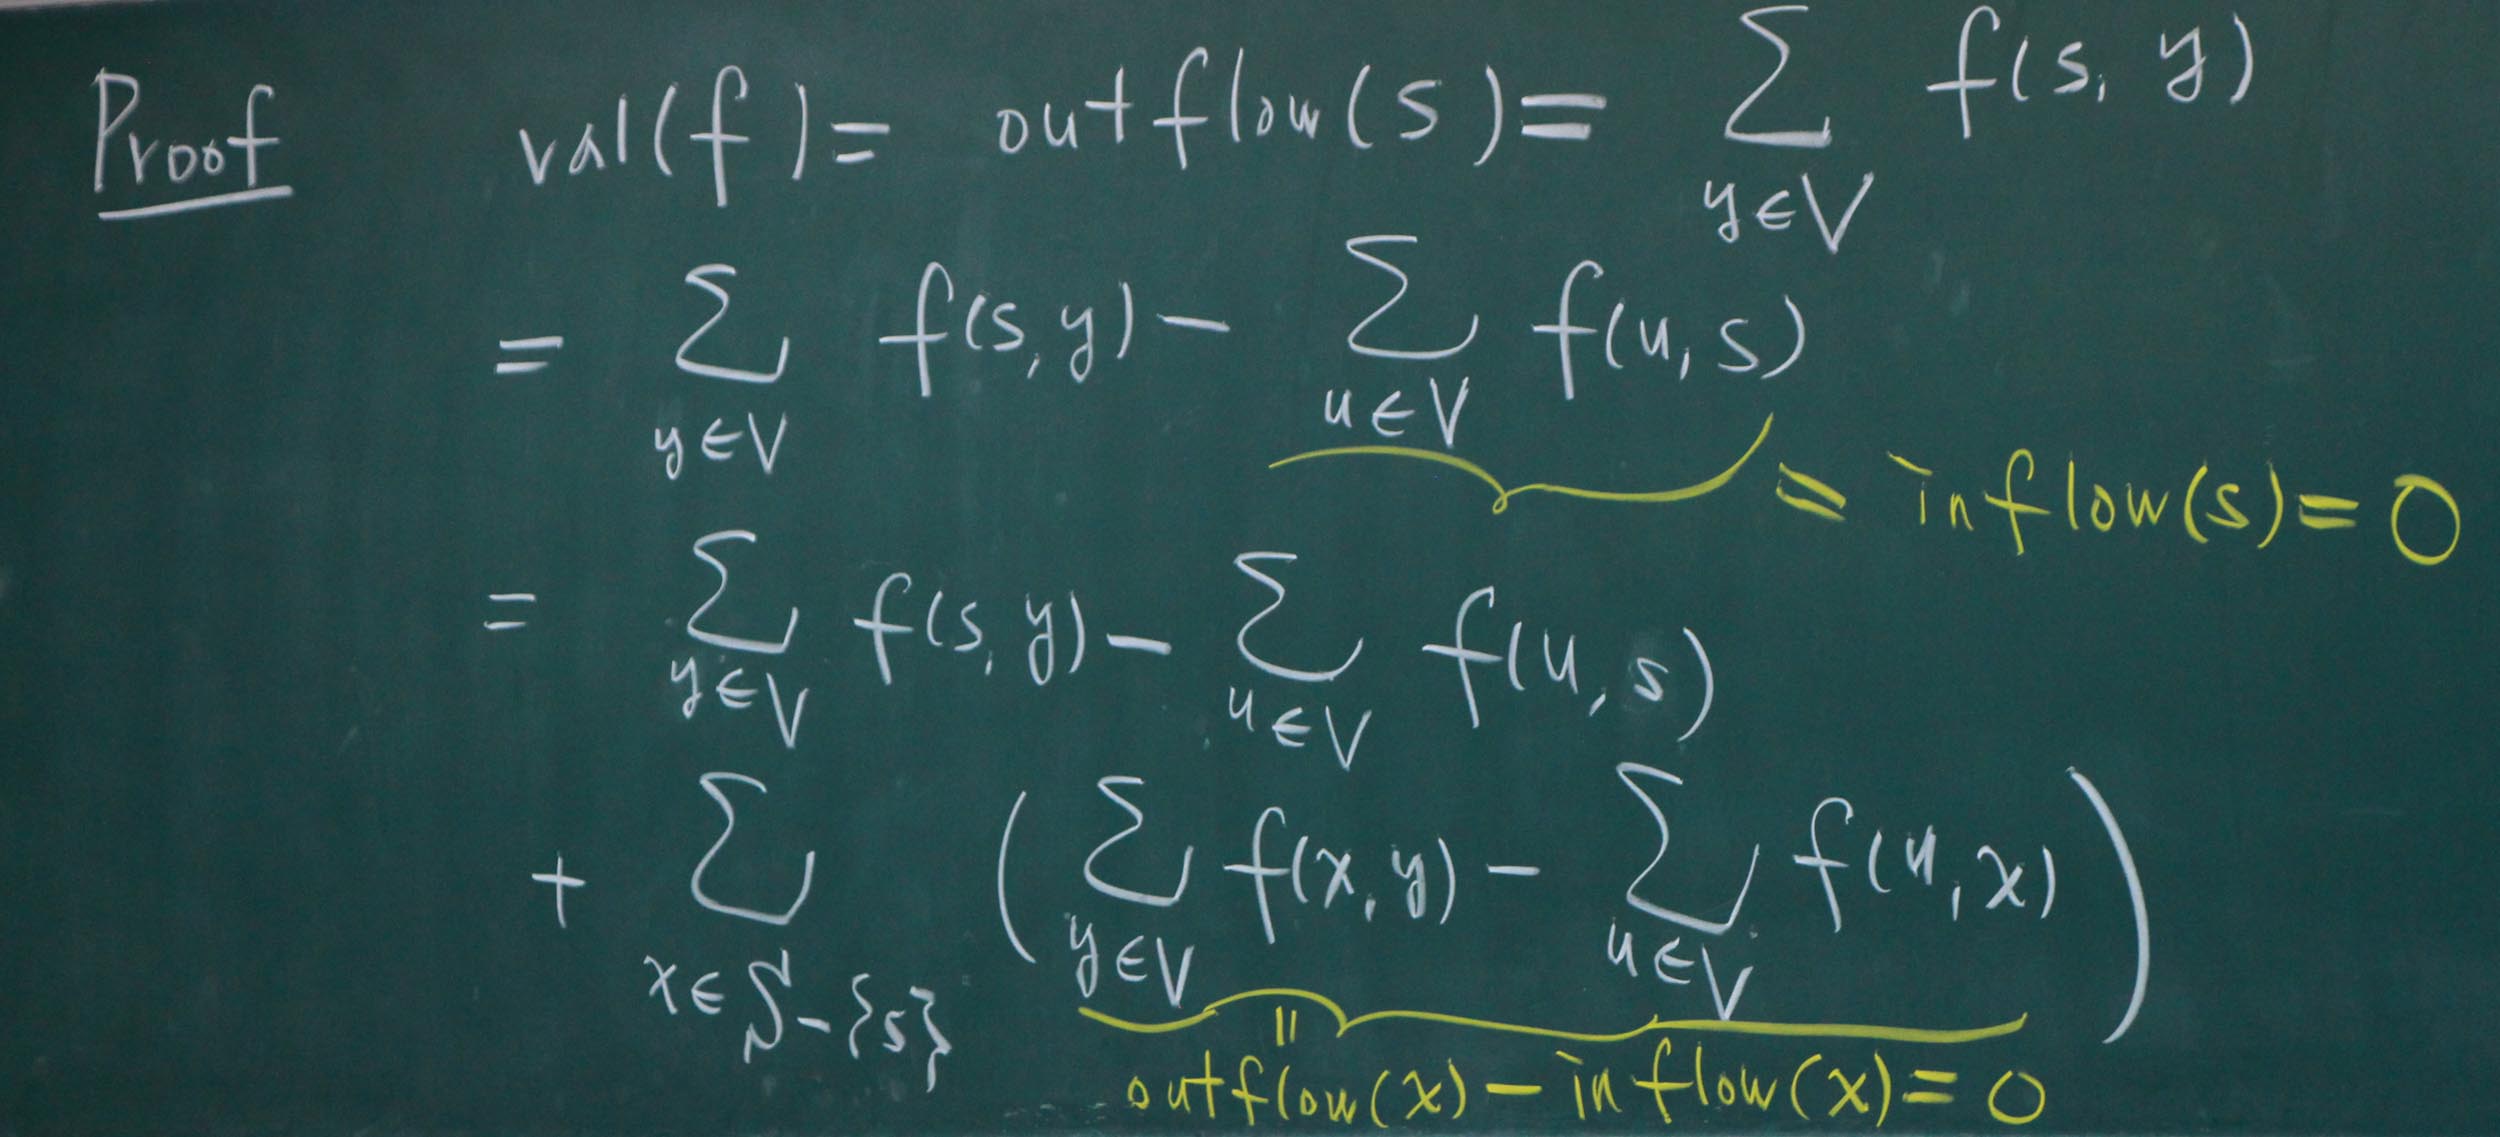 Proof val(f) = outflow(s) = ∑_{y∈V} f(s, y)
= ∑_{y∈V} f(s, y) - ∑_{u∈V} f(u, s)
= inflow(s) = 0
= ∑_{y∈V} f(s, y) - ∑_{u∈V} f(u, s)
+ ∑_{x∈S-{s}} ( ∑_{y∈V} f(x, y) - ∑_{u∈V} f(u, x) )
=
outflow(x) - inflow(x) = 0